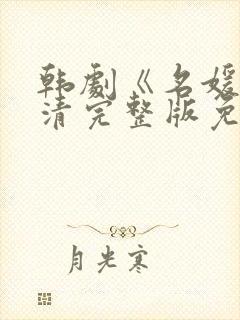 韩劇《名媛
清完整版免
月光寒